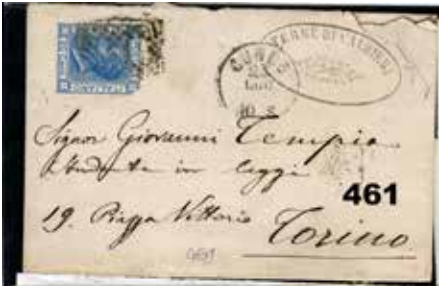 CUNEO
23
LUG
10 S
TERME DI VALDIERI
Signor Giovanni Tempia
studente in leggi
461
19. Piazza Vittorio
Torino